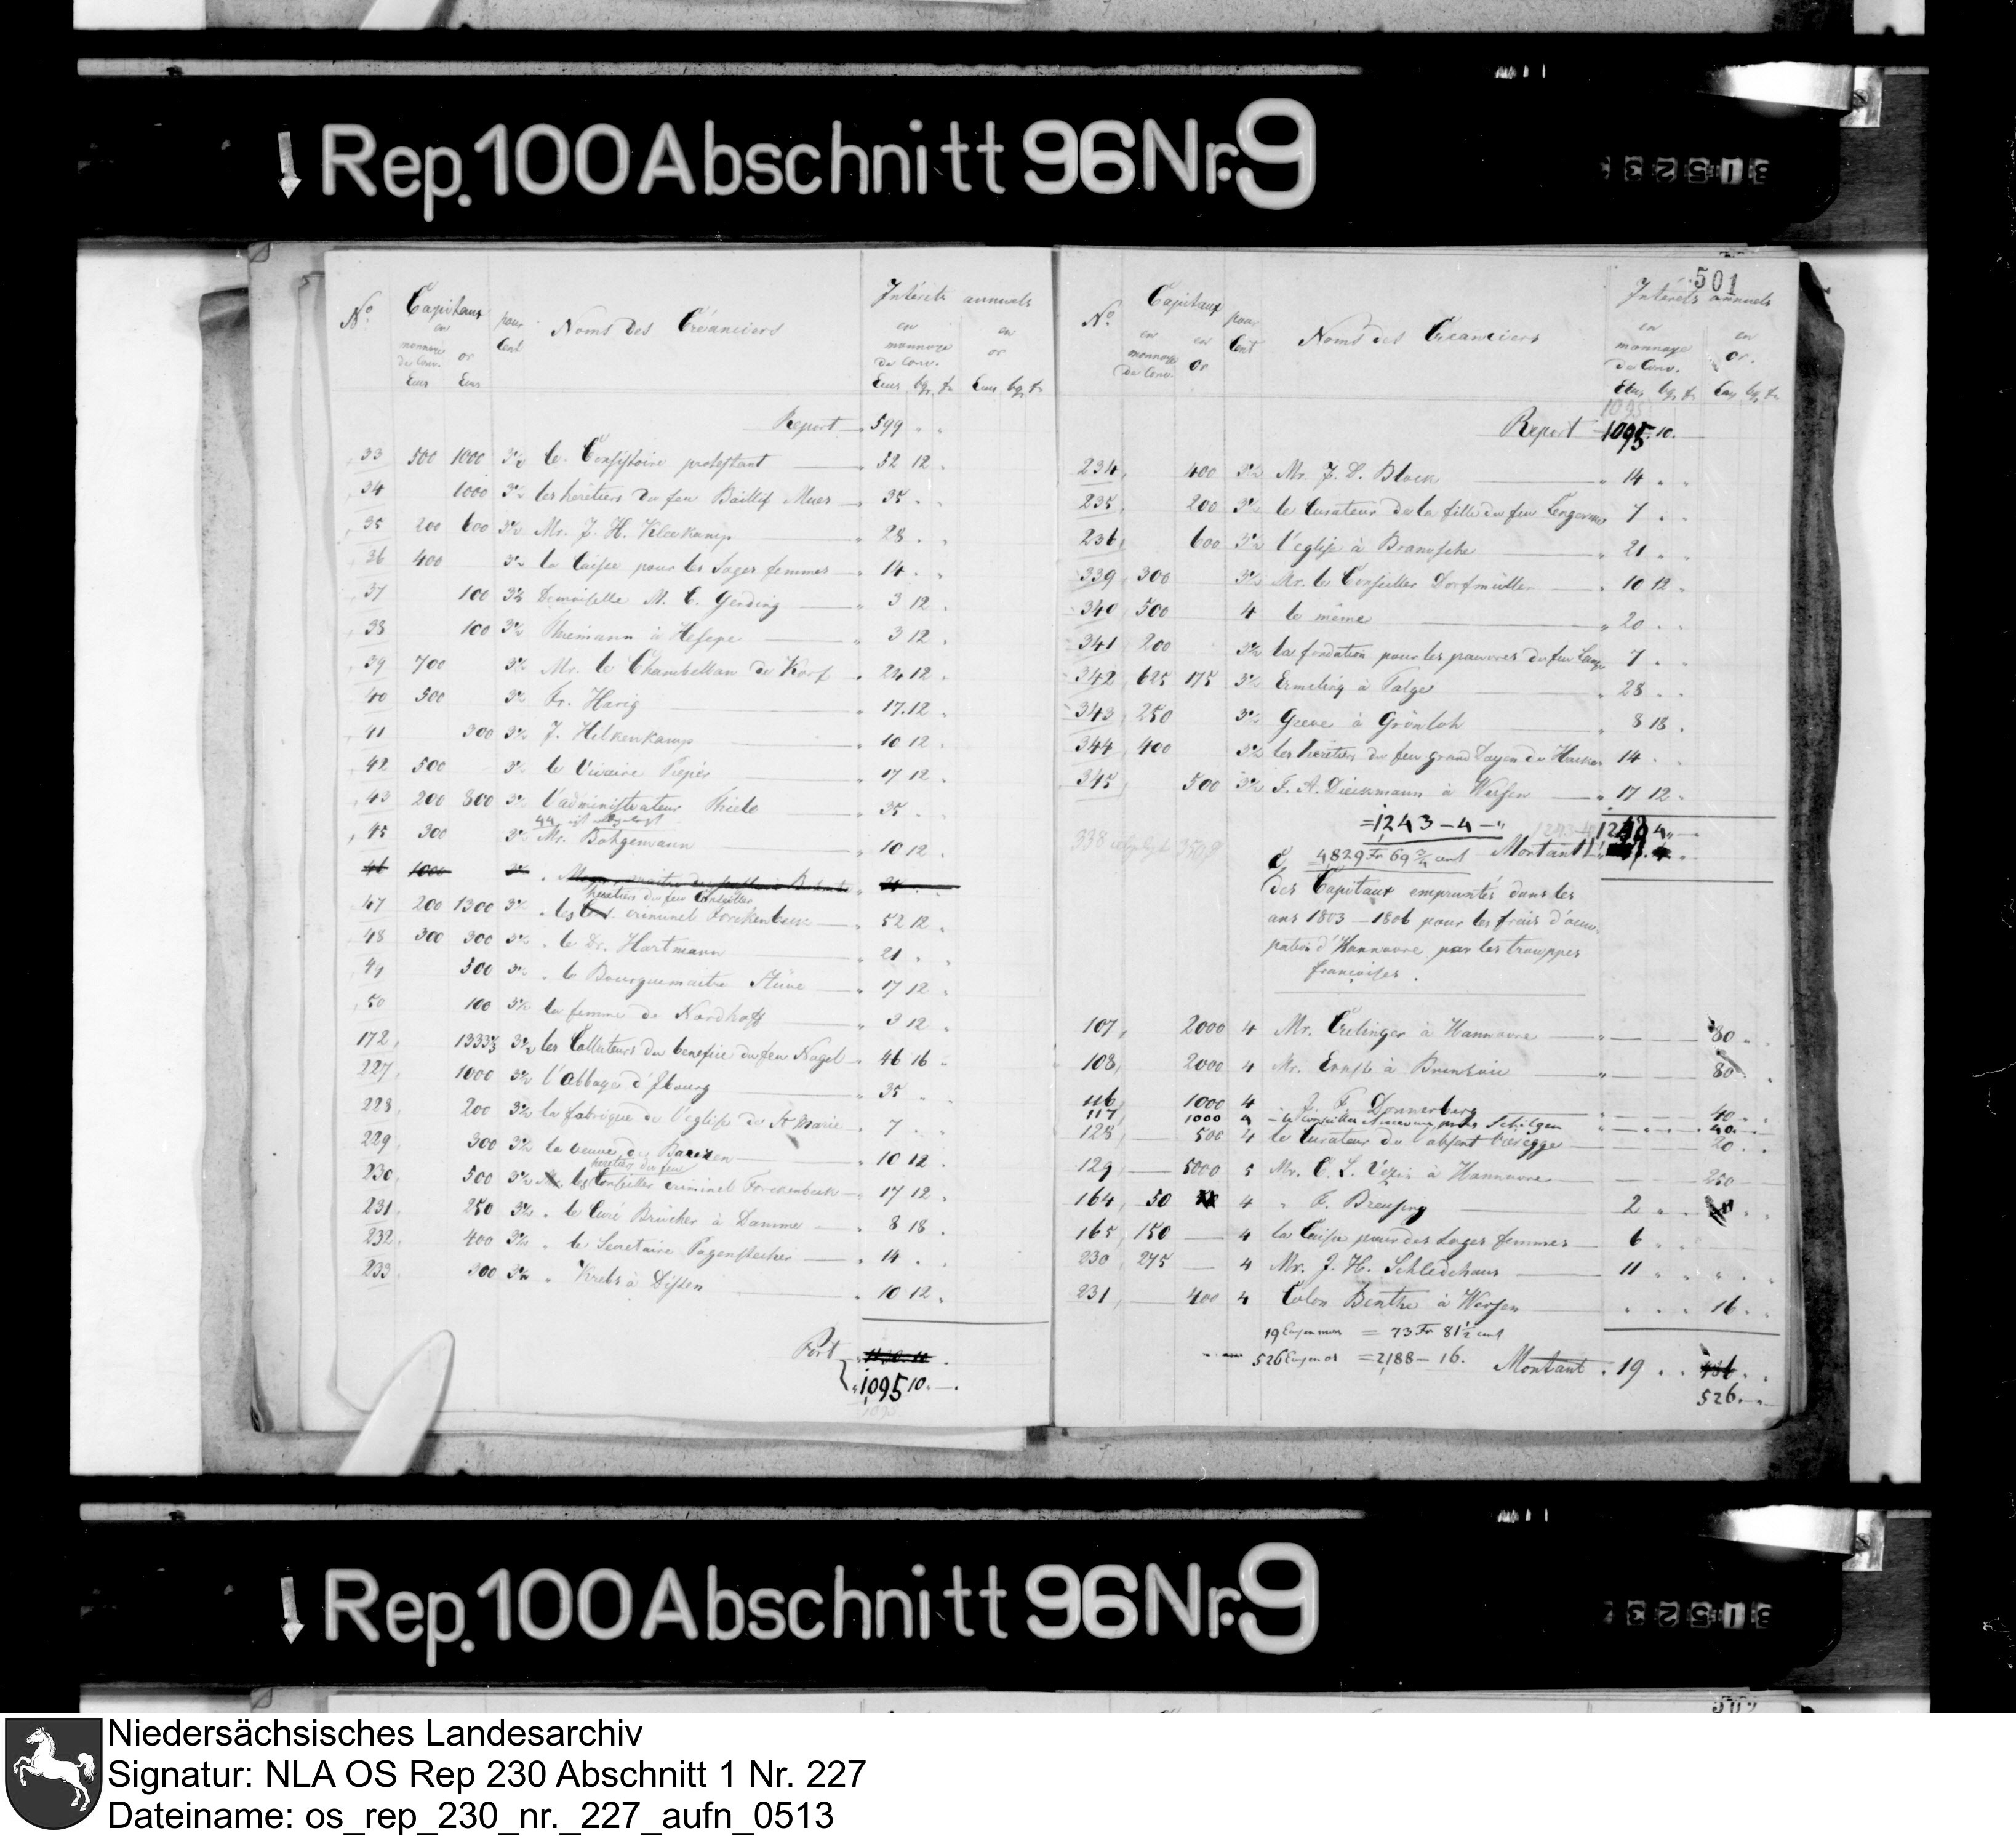 Rep. 100 Abschnitt 96 Nr. 9
31523
No. Capitaux pour Cent Noms des Créanciers Intérêts annuels
en monnoie de Conv. or en monnoye de Conv. en or
Ecus Ecus Ecus bg. Ecus bg.
Report 599
33 500 1000 3½ le Consistoire protestant 52 12
34 1000 3½ les heretiers du feu Baillif Meier 35
35 200 600 3½ Mr. J. H. Kleekamp 28
36 400 3½ la Caisse pour les Sages femmes 14
37 100 3½ Demoiselle M. E. Gerding 3 12
38 100 3½ Thiemann à Hesepe 3 12
39 700 3½ Mr. le Chambellan de Korf 24 12
40 500 3½ Fr. Harig 17 12
41 300 3½ J. Hilkenkamp 10 12
42 500 3½ le Vicaire Pieper 17 12
43 200 800 3½ l'administrateur Thiele 35
44 ist abgelegt
45 300 3½ Mr. Bohgemann 10 12
46 1000
heretiers du feu Conseiller
47 200 1300 3½ les criminel Forckenbeck 52 12
48 300 300 3½ le Dr. Hartmann 21
49 500 3½ le Bourguemaitre Stüve 17 12
50 100 3½ la femme de Nordhoff 3 12
172 1333⅓ 3½ les Collateurs du benefice du feu Nagel 46 16
227 1000 3½ l'abbaye d'Ibourg 35
228 200 3½ la fabrique de l'eglise de St Marie 7
229 300 3½ la veuve de 10 12
heretiers du feu
230 500 3½ les Conseiller criminel Forckenbeck 17 12
231 250 3½ le Curé Brücher à Damme 8 18
232 400 3½ le Secretaire Pagenstecher 14
233 300 3½ Krebs à Dissen 10 12
Port
1095 10
501
No. Capitaux pour Cent Noms des Creanciers Intérêts annuels
en monnoye de Conv. en or en monnoye de Conv. en or.
Ecus bg. Ecus bg.
1095
Report 1095 10
234 400 3½ Mr. F. D. Block 14
235 200 3½ le Curateur de la fille du feu 7
236 600 3½ l'eglise à Bramsche 21
339 300 3½ Mr. le Conseiller Dorfmüller 10 12
340 500 4 le même 20
341 200 3½ la fondation pour les pauvres du feu 7
342 625 175 3½ Ermeling à Talge 28
343 250 3½ Greve à Grönloh 8 18
344 400 3½ les heretiers du feu grand Doyen de 14
345 500 3½ F. A. Dieckmann à Wersen 17 12
=1243-4-" 1243-4
338
4829 Fr 69¾ cent Montant
des Capitaux empruntés dans les
ans 1803 – 1806 pour les frais d'occu-
pation d'Hannovre par les trouppes
françoises.
107 2000 4 Mr. Crelinger à Hannovre 80
108 2000 4 Mr. Ernst à 80
116 1000 4 J. F. Donnerberg 40
117 1000 4 le Conseiller Schilgen 40
125 500 4 le Curateur de l'absent 20
129 5000 5 Mr. C. L. Vezin à Hannovre 250
164 50 4 F. Breusing 2
165 150 4 la Caisse pour des Sages femmes 6
230 275 4 Mr. J. H. Schledehaus 11
231 400 4 Colon Benthe à Wersen 16
19 = 73 Fr 81½ cent
526 = 2188 – 16. Montant 19
526
Rep. 100 Abschnitt 96 Nr. 9
31523
502
Niedersächsisches Landesarchiv
Signatur: NLA OS Rep 230 Abschnitt 1 Nr. 227
Dateiname: os_rep_230_nr._227_aufn_0513